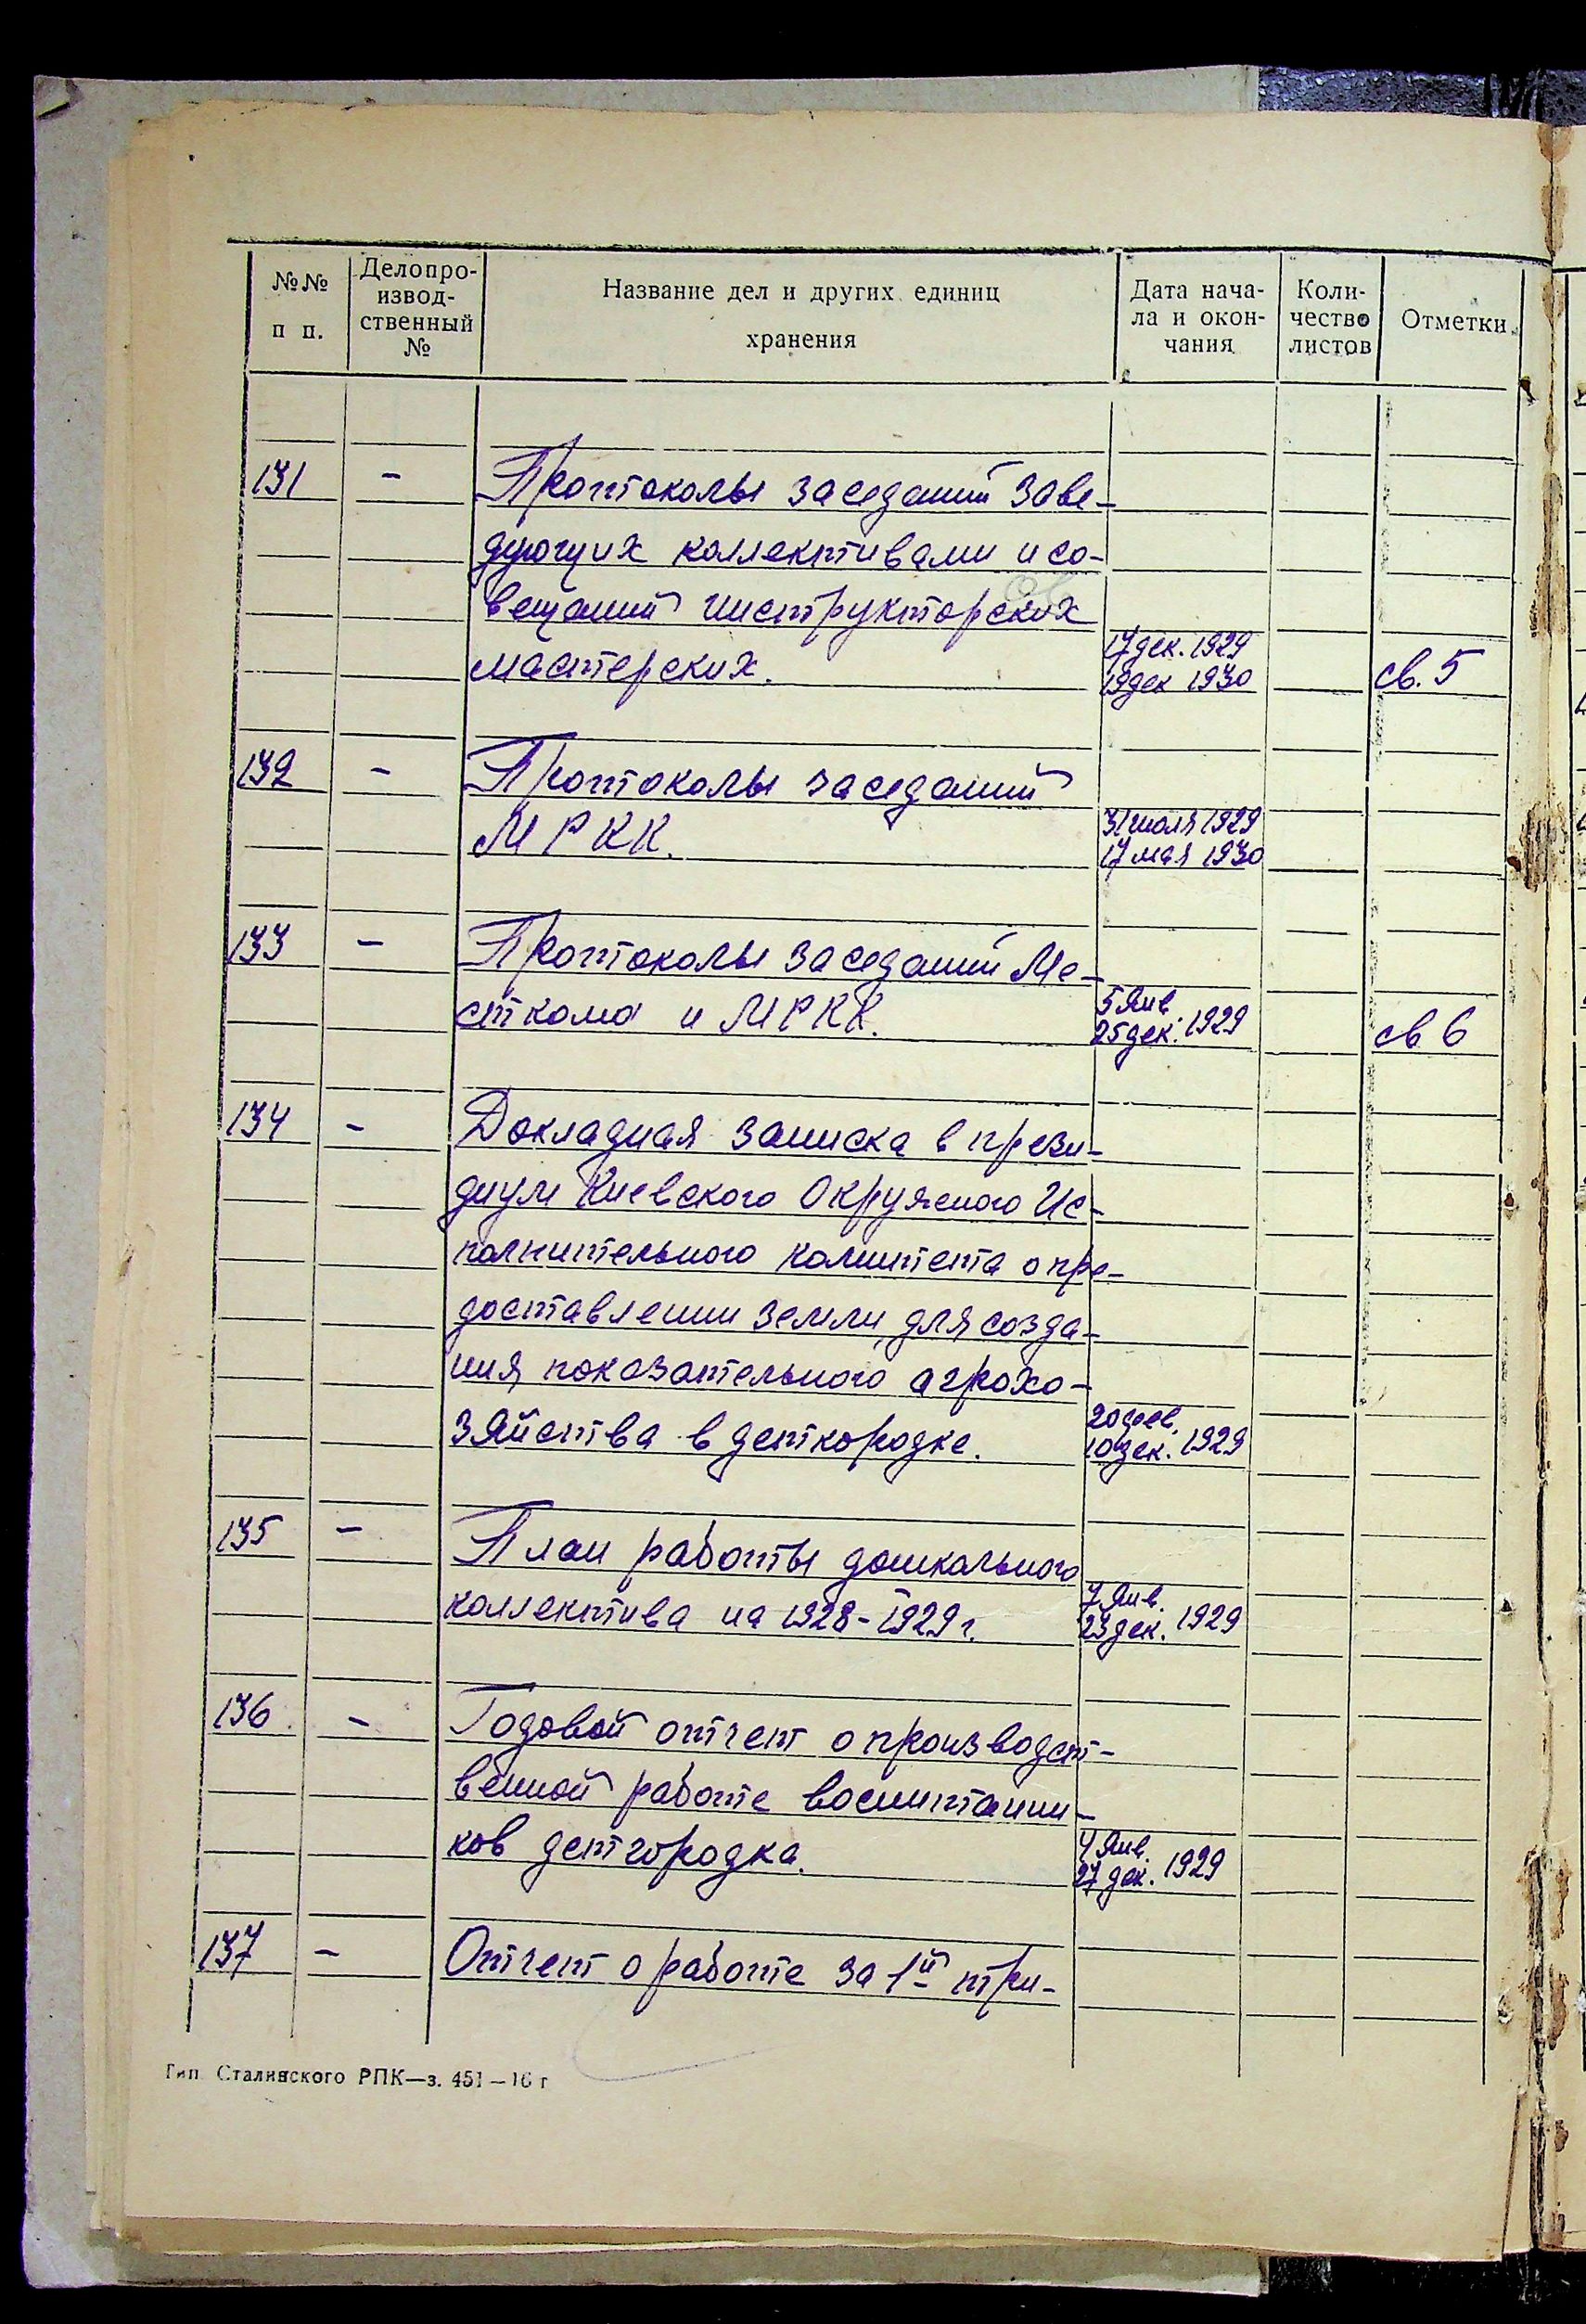 №№ п п.
Делопро-
извод-
ственный
№
Название дел и других единиц
хранения
Дата нача-
ла и окон-
чания
Коли-
чество
листов
Отметки
131 - Протоколы заседаний заве-
дующих коллективами и со-
вещаний инструкторских
мастерских. 17 дек. 1929
19 дек 1930 св. 5
132 - Протоколы заседаний
МРКК. 31 июля 1929
17 мая 1930
133 - Протоколы заседаний Ме-
сткома и МРКК. 5 янв.
25 дек. 1929 св 6
134 - Докладная записка в прези-
диум Киевского Окружного Ис-
полнительного комитета о пре-
доставлении земли, для созда-
ния показательного агрохо-
зяйства в деткородке. 20 фев.
10 дек. 1929
135 - План работы дошкольного
коллектива на 1928-1929 г. 7 янв.
23 дек. 1929
136 - Годовой отчет о производст-
венной работе воспитанни-
ков детгородка. 4 янв.
27 дек. 1929
137 - Отчет о работе за 1й три-
Тип. Сталинского РПК—з. 451—16 г